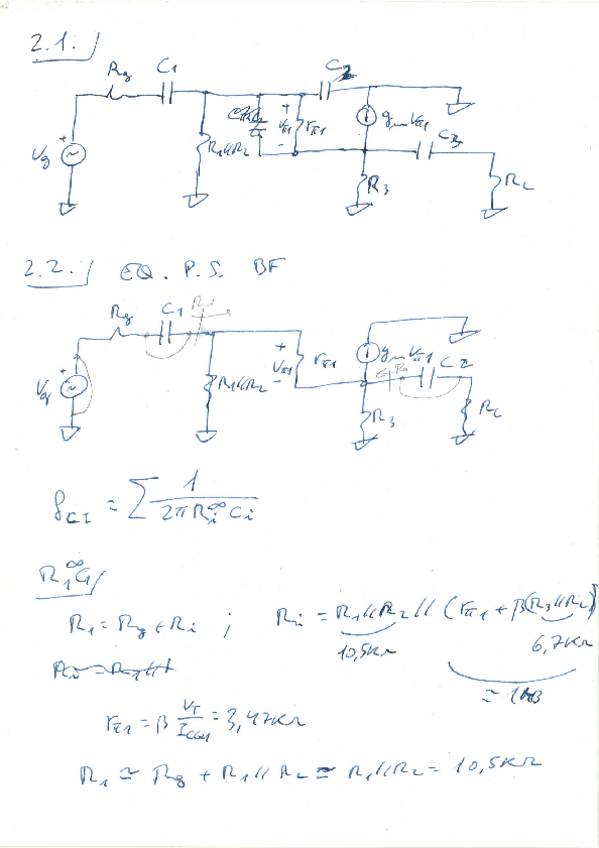 2.1.
Rg C1 C2
Vg + R1//R2 + Vπ1 - rπ1 gmVπ1 C3
R3 RL
2.2. EQ. P.S. BF
Rg C1 Ri
Vg + R1//R2 + Vπ1 - rπ1 gmVπ1 C2
R3 RL
fCI = Σ 1 / 2πRi∞Ci
R1∞C1
R1 = Rg + Ri ; Ri = R1//R2 // (rπ1 + β(R3//RL)
10,5KΩ 6,7KΩ
rπ1 = β VT / ICQ1 = 3,47KΩ
R1 ≃ Rg + R1//R2 ≃ R1//R2 = 10,5KΩ